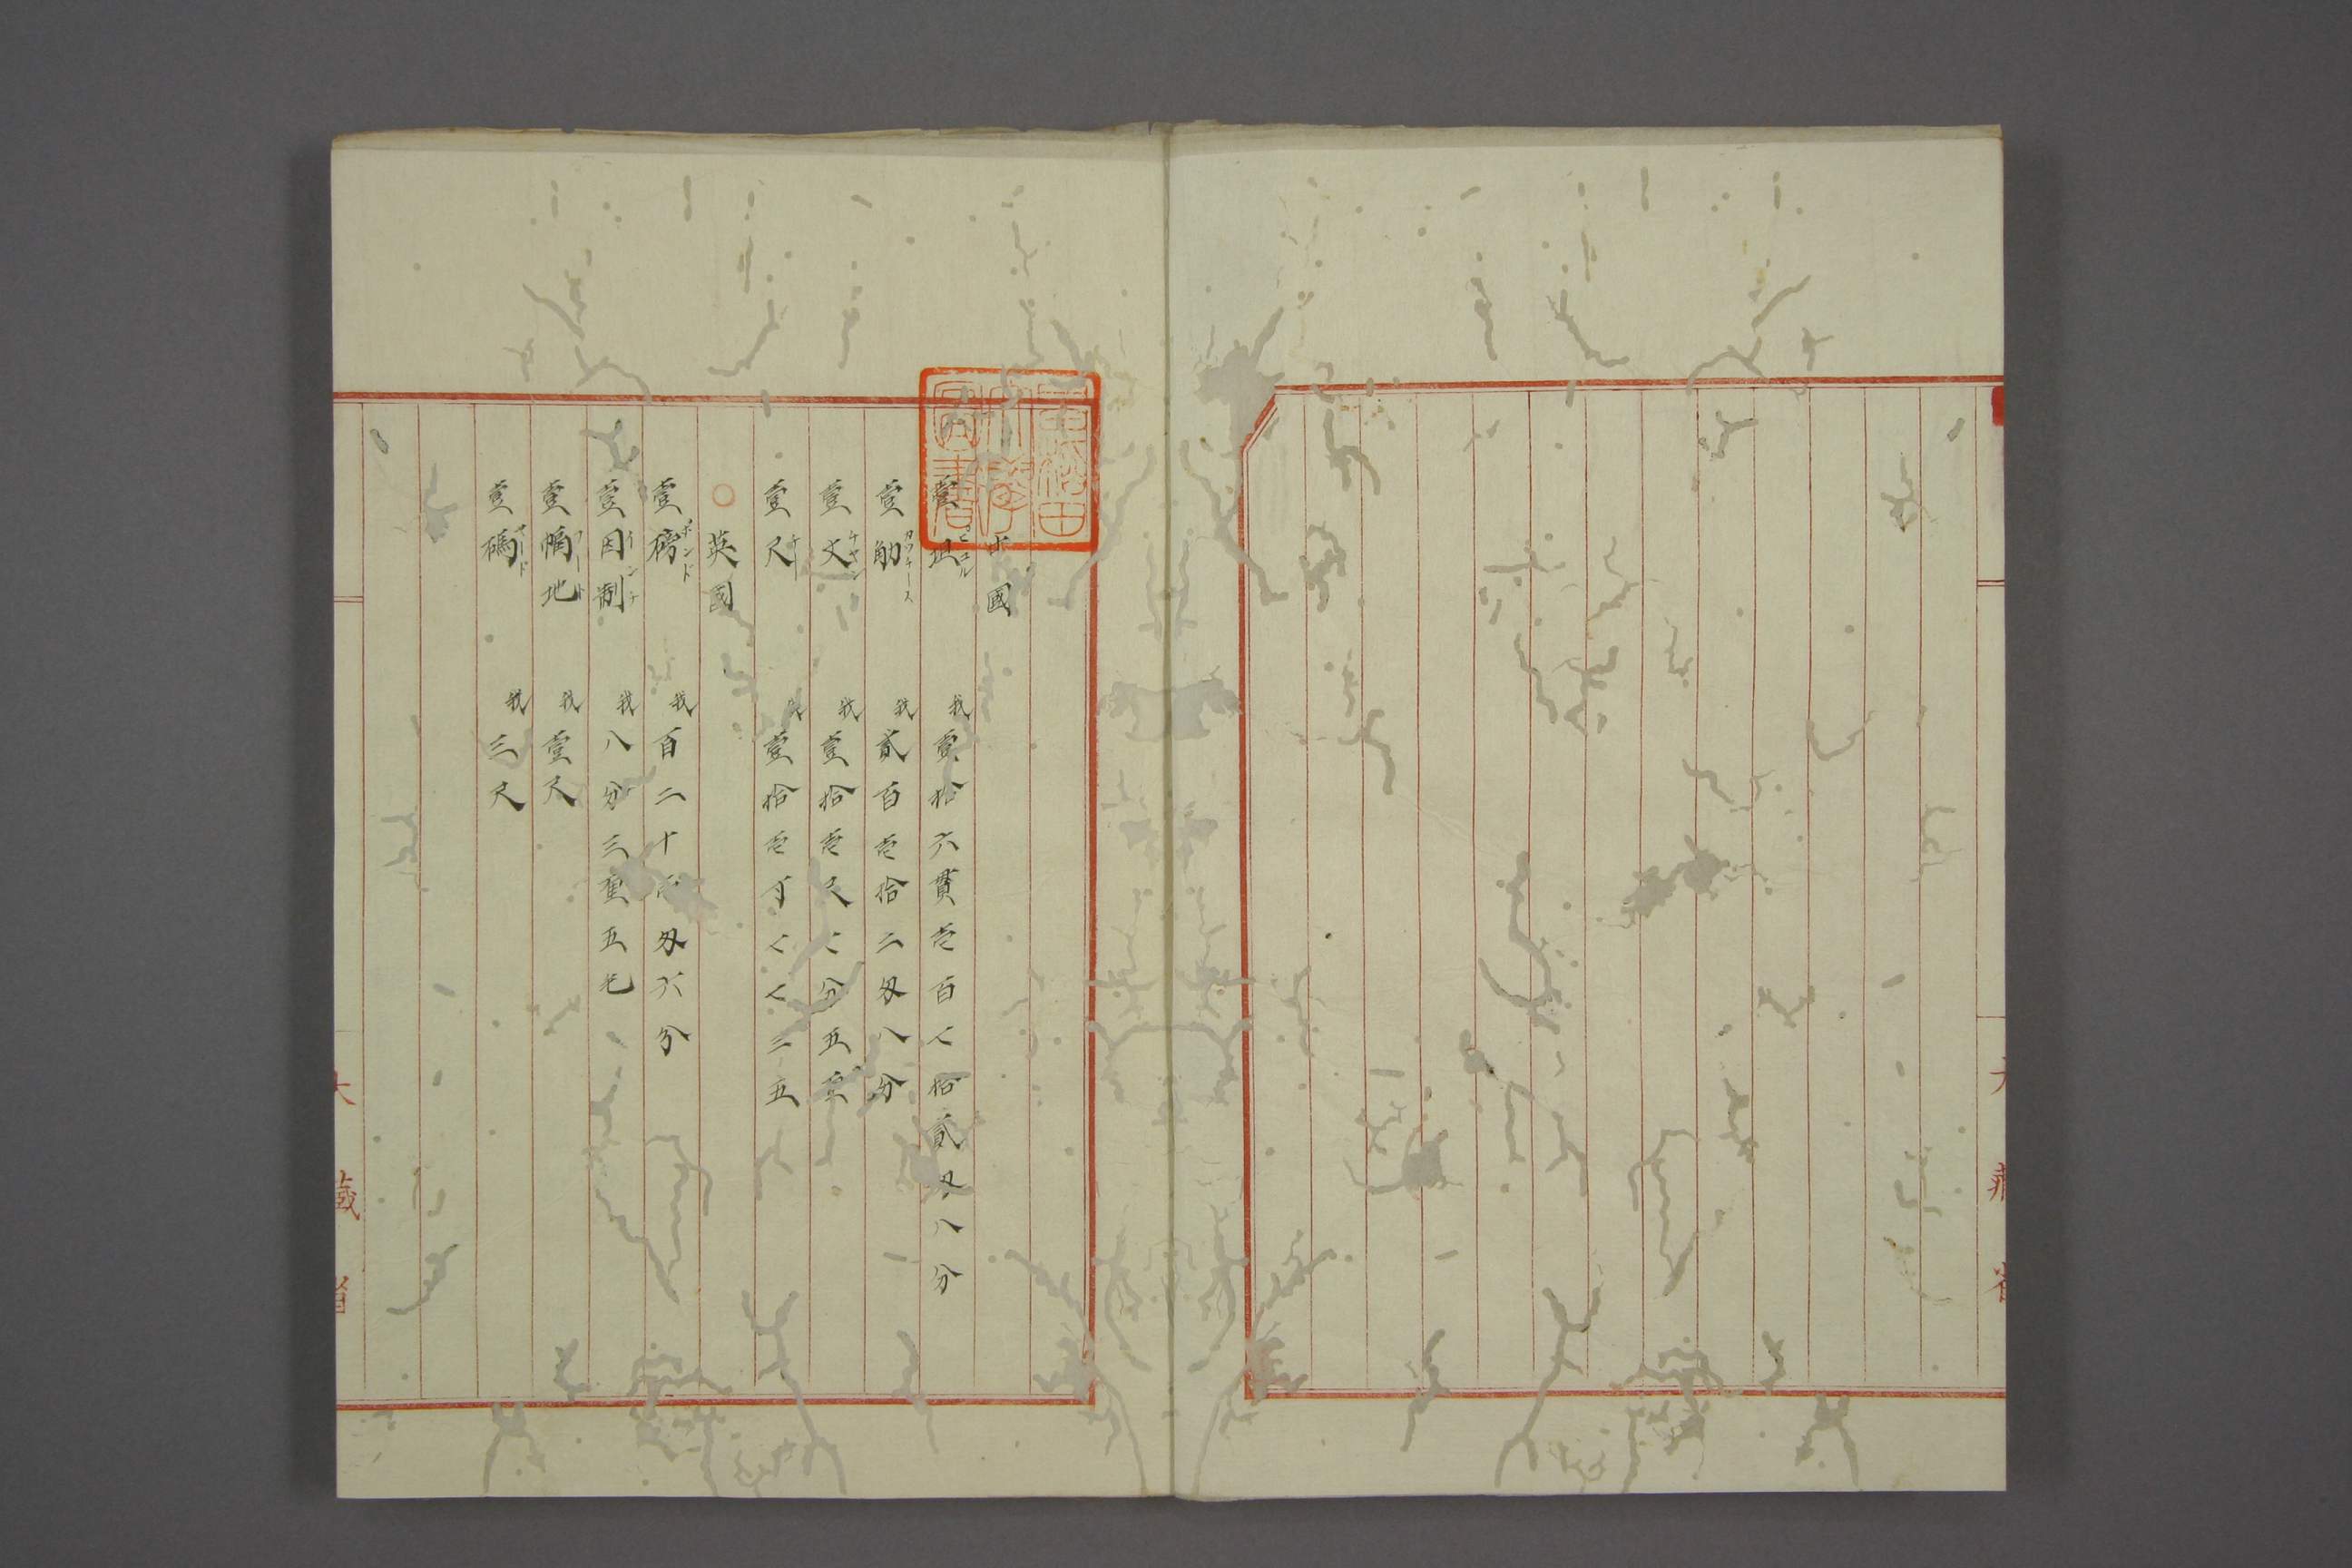 國
壹担 ピコル 我壹拾六貫壱百七拾貳匁八分
壹觔 カッチース 我貳百壱拾二匁八分
壹丈 チヤン 我壹拾壱尺七分五
壹尺 チー 壹拾壱寸七七三五
○ 英國
壹磅 ポンド 我百二十 匁六分
壹因制 インチ 我八分三厘五毛
壹幅地 フート 我壹尺
壹碼 ヤード 我三尺
大藏省
早稲田大學圖書